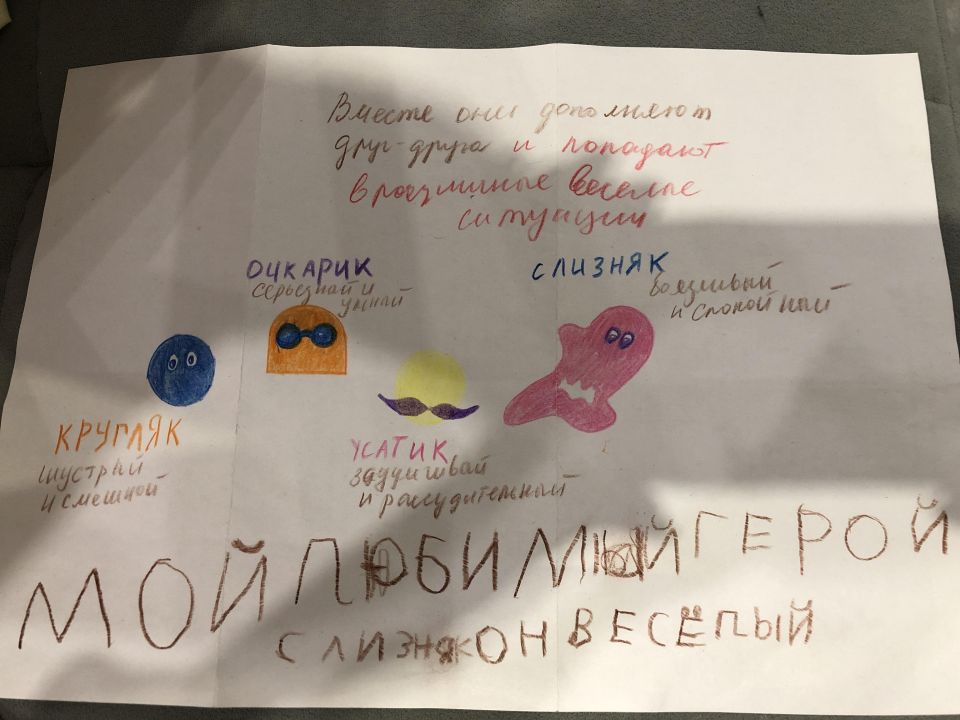 Вместе они дополняют
друг-друга и попадают
в различные веселые
ситуации
ОЧКАРИК
серьезный и
умный
СЛИЗНЯК
вязкий
и спокойный
КРУГЛЯК
шустрый
и смешной
УСАТИК
задумчивый
и рассудительный
МОЙ ЛЮБИМЫЙ ГЕРОЙ
СЛИЗНЯК ОН ВЕСЁЛЫЙ